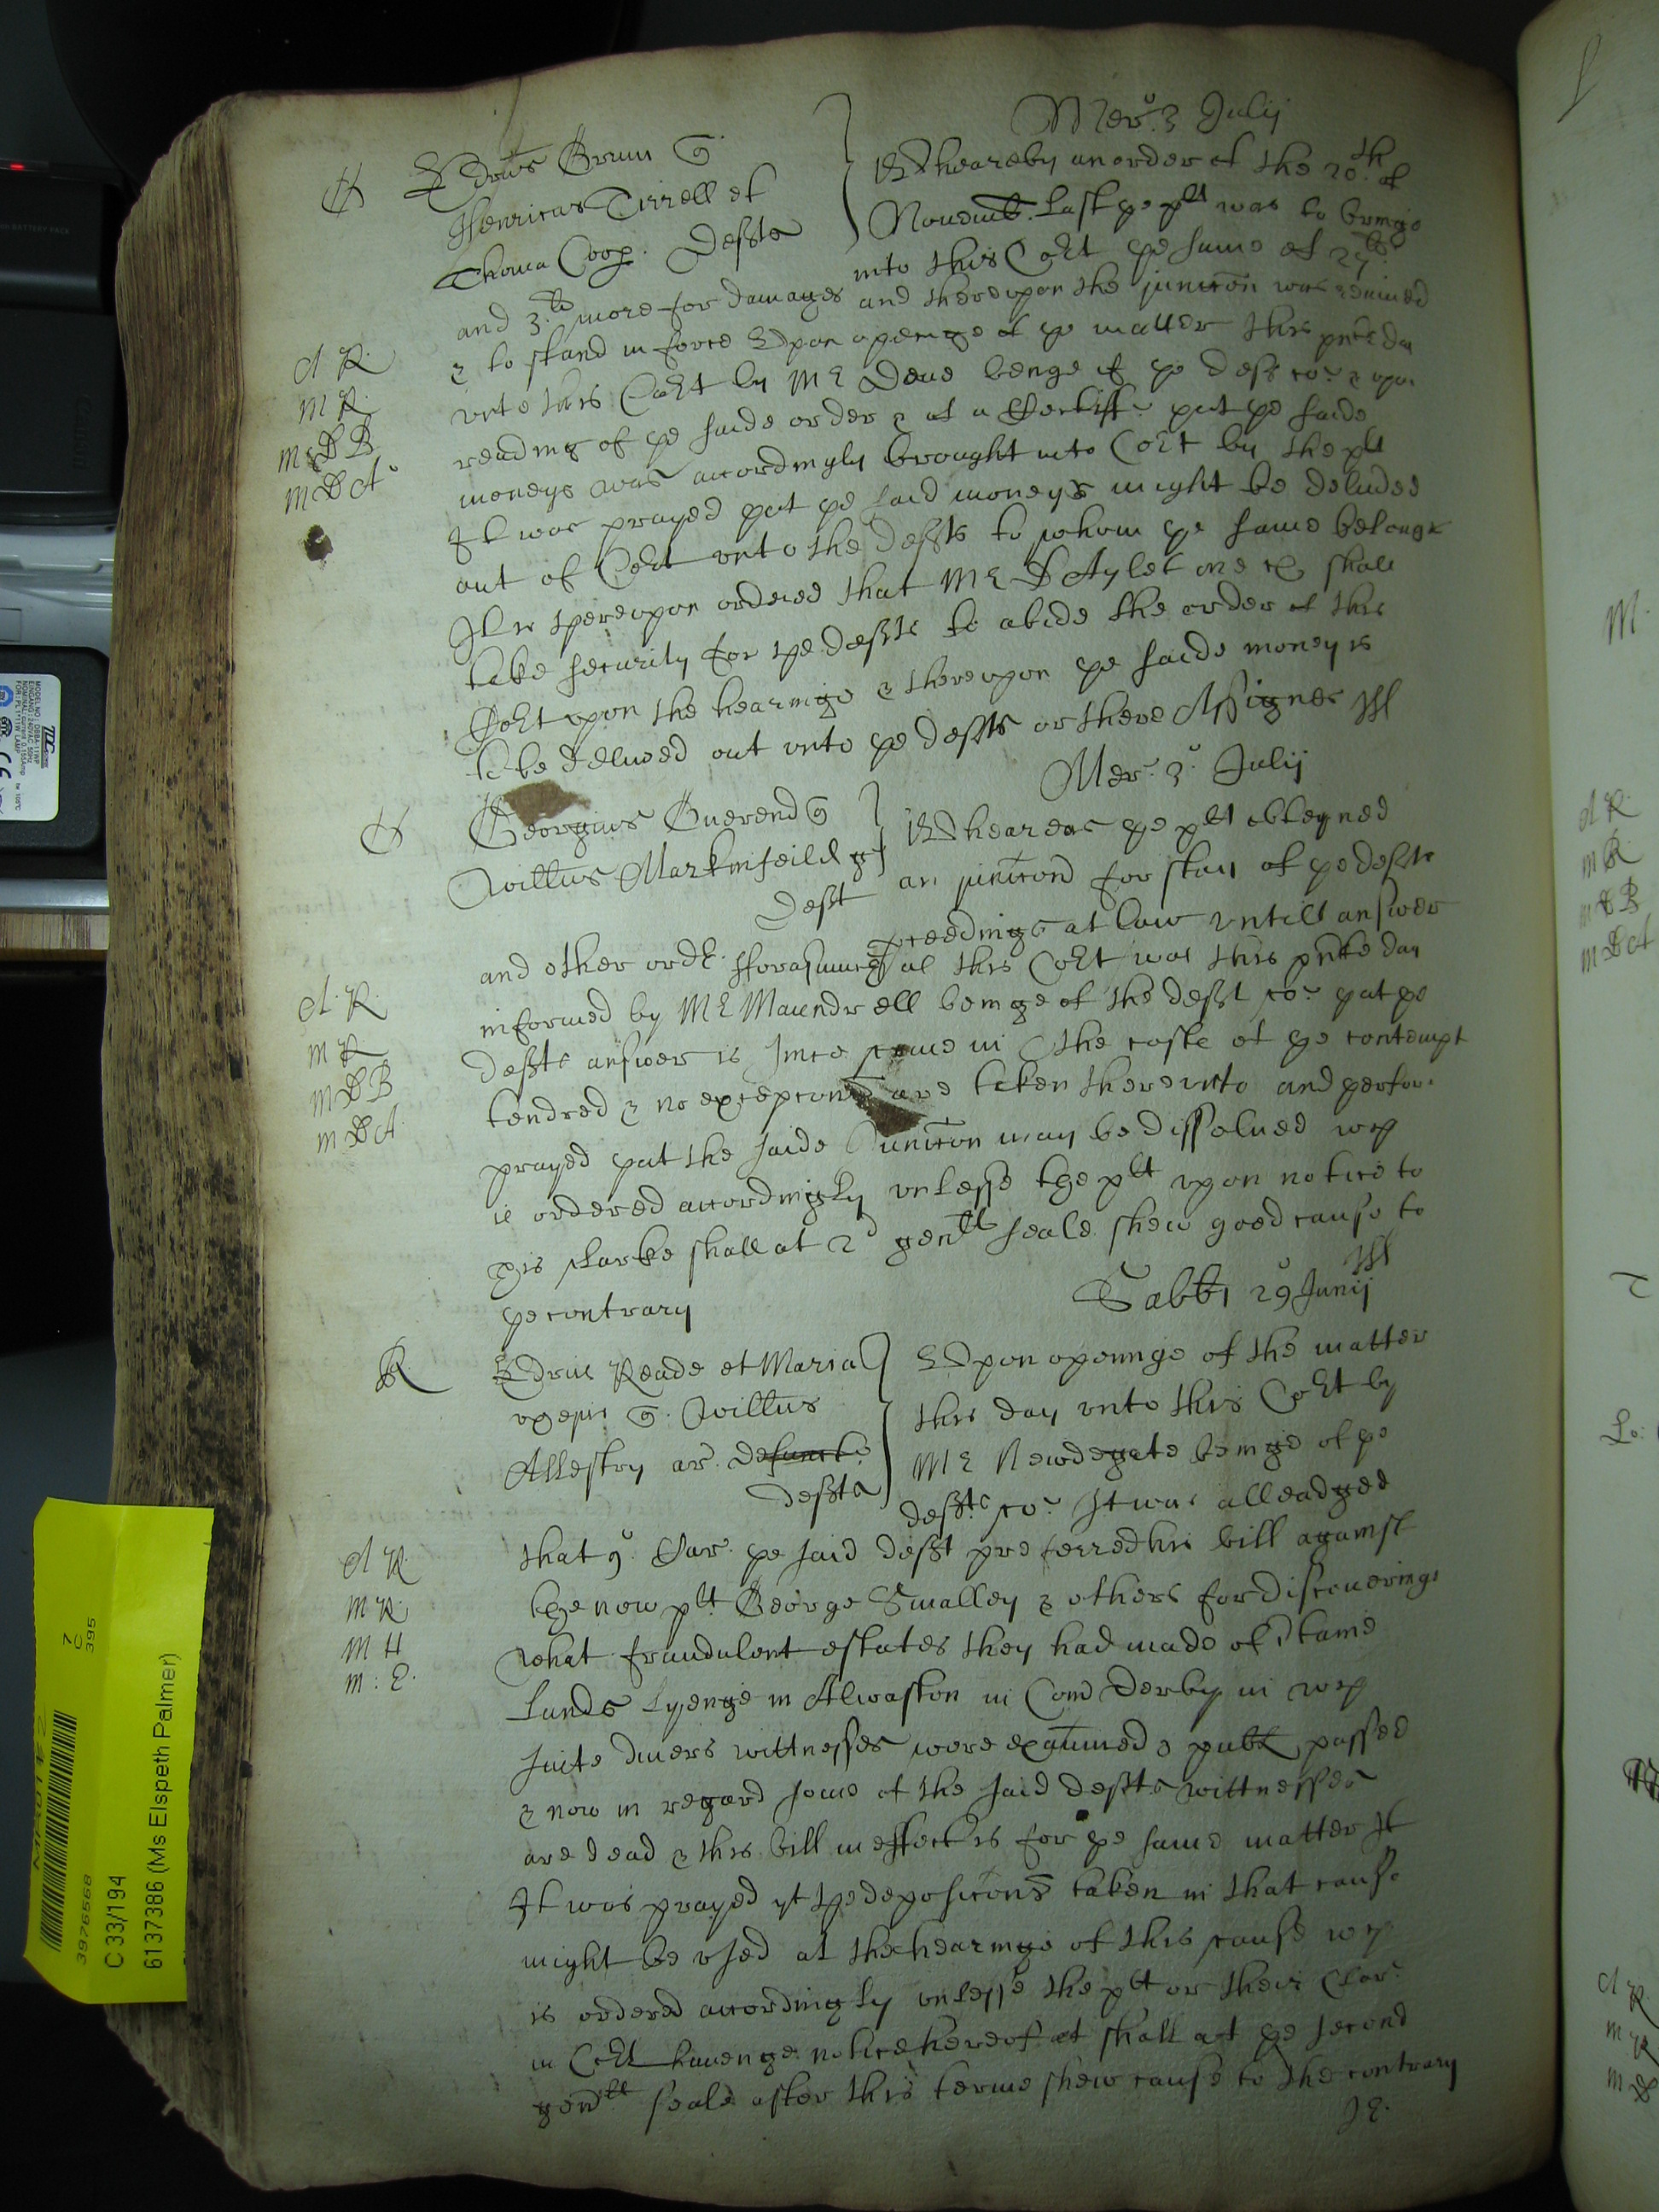 Mer: 3º Julij
H Edrus Brunn q
Henricus Tirrell et
Thoma Coop. Defts
Whereby an order of the 20th of
Novemb. Last ye plt was to bringe
into this Cort ye sume of 27li
and 3li more for damages and thereupon the juncton was
& to stand in force Upon openge of ye matter this pnte day
unto this Cort by Mr Dene beinge of ye defts co: & upon
reading of ye saide order & of a Certiff: yat ye saide
moneys was accordingly brought into Cort by the plt
It was prayed yat ye said moneys might be delivred
out of Cort unto the defts to whom ye same belongs
It is thereupon ordered that Mr D Aylet one &c shall
take security for the defts to abide the order of this
Cort upon the hearinge & thereupon ye saide money is
to be delivred out unto ye defts or there Assignes
A R.
M R.
M D B
M D A
Mer: 3º Julij
Georgius Querend q
Willus Markinfeild gr
Deft
Wheareas ye plt obteyned
an juncton for stay of ye defts
preedings at law untill answer
and other ordr. fforasmuch as this Cort was this pnte day
informed by Mr Maundrell beinge of the deft co: yat ye
defts answer is since come in the coste of ye contempt
tendred & no excepcons are taken thereunto and
prayed yat the saide Juncton may be dissolued wch
is ordered accordingly unlesse the plt upon notice to
his clarke shall at 2d genll seale shew good cause to
ye contrary
A. R
M R
M D B
M D A
Sabbi 29º Junij
R Edrus Reade et Maria
uxem q. Willus
Allestry ar. defunct.
Defts
Upon openinge of the matter
this day unto this Cort by
Mr Newdegate beinge of ye
defts co: It was alleadged
that q. Car. ye said deft preferred his bill against
the now plt. George Smalley & others for discoueringe
what fraudulent estates they had made of certaine
Lands Lyenge in Alwaston in Com Derby in wch
suite divers wittnesses were examined & publ passed
& now in regard some of the said defts wittnesses
are dead & this bill in effect is for ye same matter It
It was prayed yt the deposicons taken in that cause
might be used at the hearinge of this cause wch
is ordered accordingly unlesse the plt or their Clar:
in Cort havenge notice hereof at shall at ye second
genll seale after this terme shew cause to the contrary
A R
M R.
M H
M: E.
J E.
C 33/194
6137386 (Ms Elspeth Palmer)
3976568
7
C
395
MODEL NO
EINGANG: 240VAC, 50Hz
FOR 1 PL11W LAMP
A R.
M R
M D B
M D A
M.